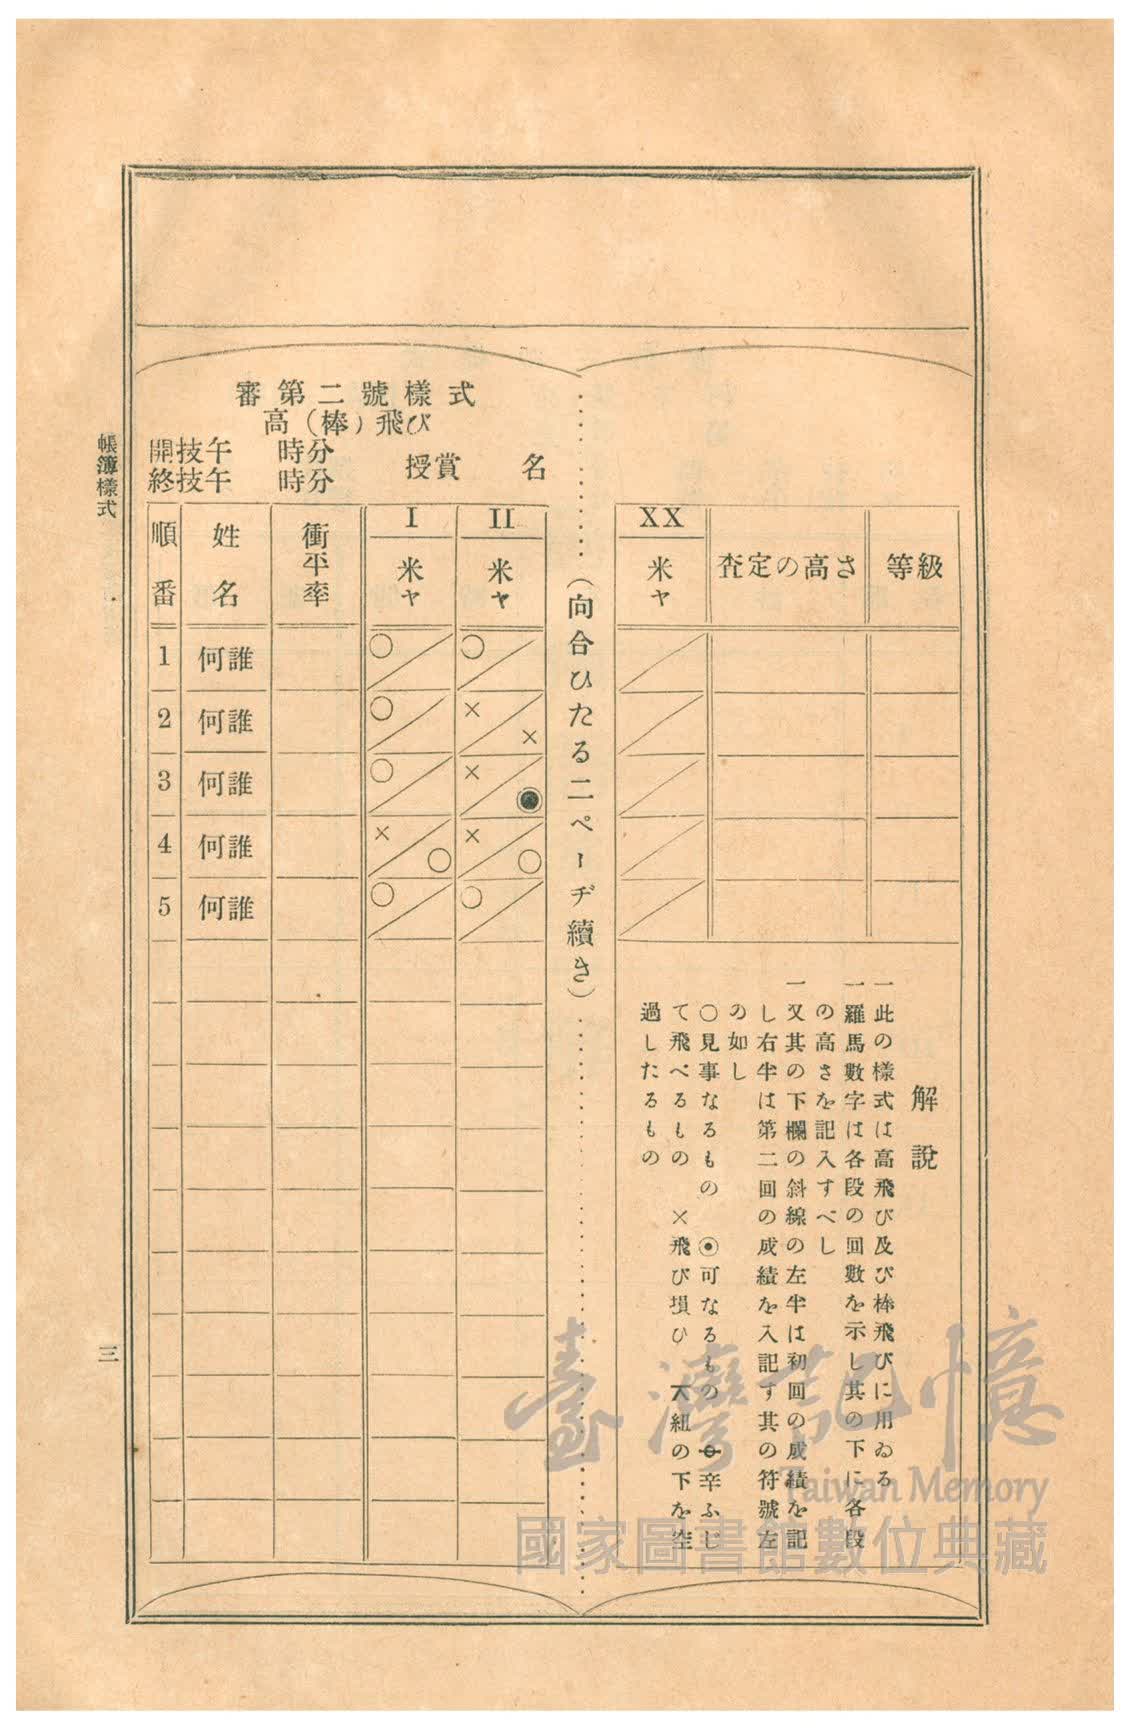 審第二號樣式
高（棒）飛び
開技午　時分
終技午　時分
授賞　名
順番　姓名　衝平率　I 米ャ　II 米ャ
1　何誰　○　○
2　何誰　○　×　×
3　何誰　○　×　◉
4　何誰　×　○　×　○
5　何誰　○　○
（向合ひたる二ペーヂ續き）
XX 米ャ　査定の高さ　等級
解說
一此の樣式は高飛び及び棒飛びに用ゐる
一羅馬數字は各段の回數を示し其の下に各段
の高さを記入すべし
一又其の下欄の斜線の左半は初回の成績を記
し右半は第二回の成績を入記す其の符號左
の如し
○見事なるもの　◉可なるもの　⦵辛ふじ
て飛べるもの　×飛び損ひ　紐の下を空
過したるもの
帳簿樣式
三
臺灣記憶
Taiwan Memory
國家圖書館數位典藏